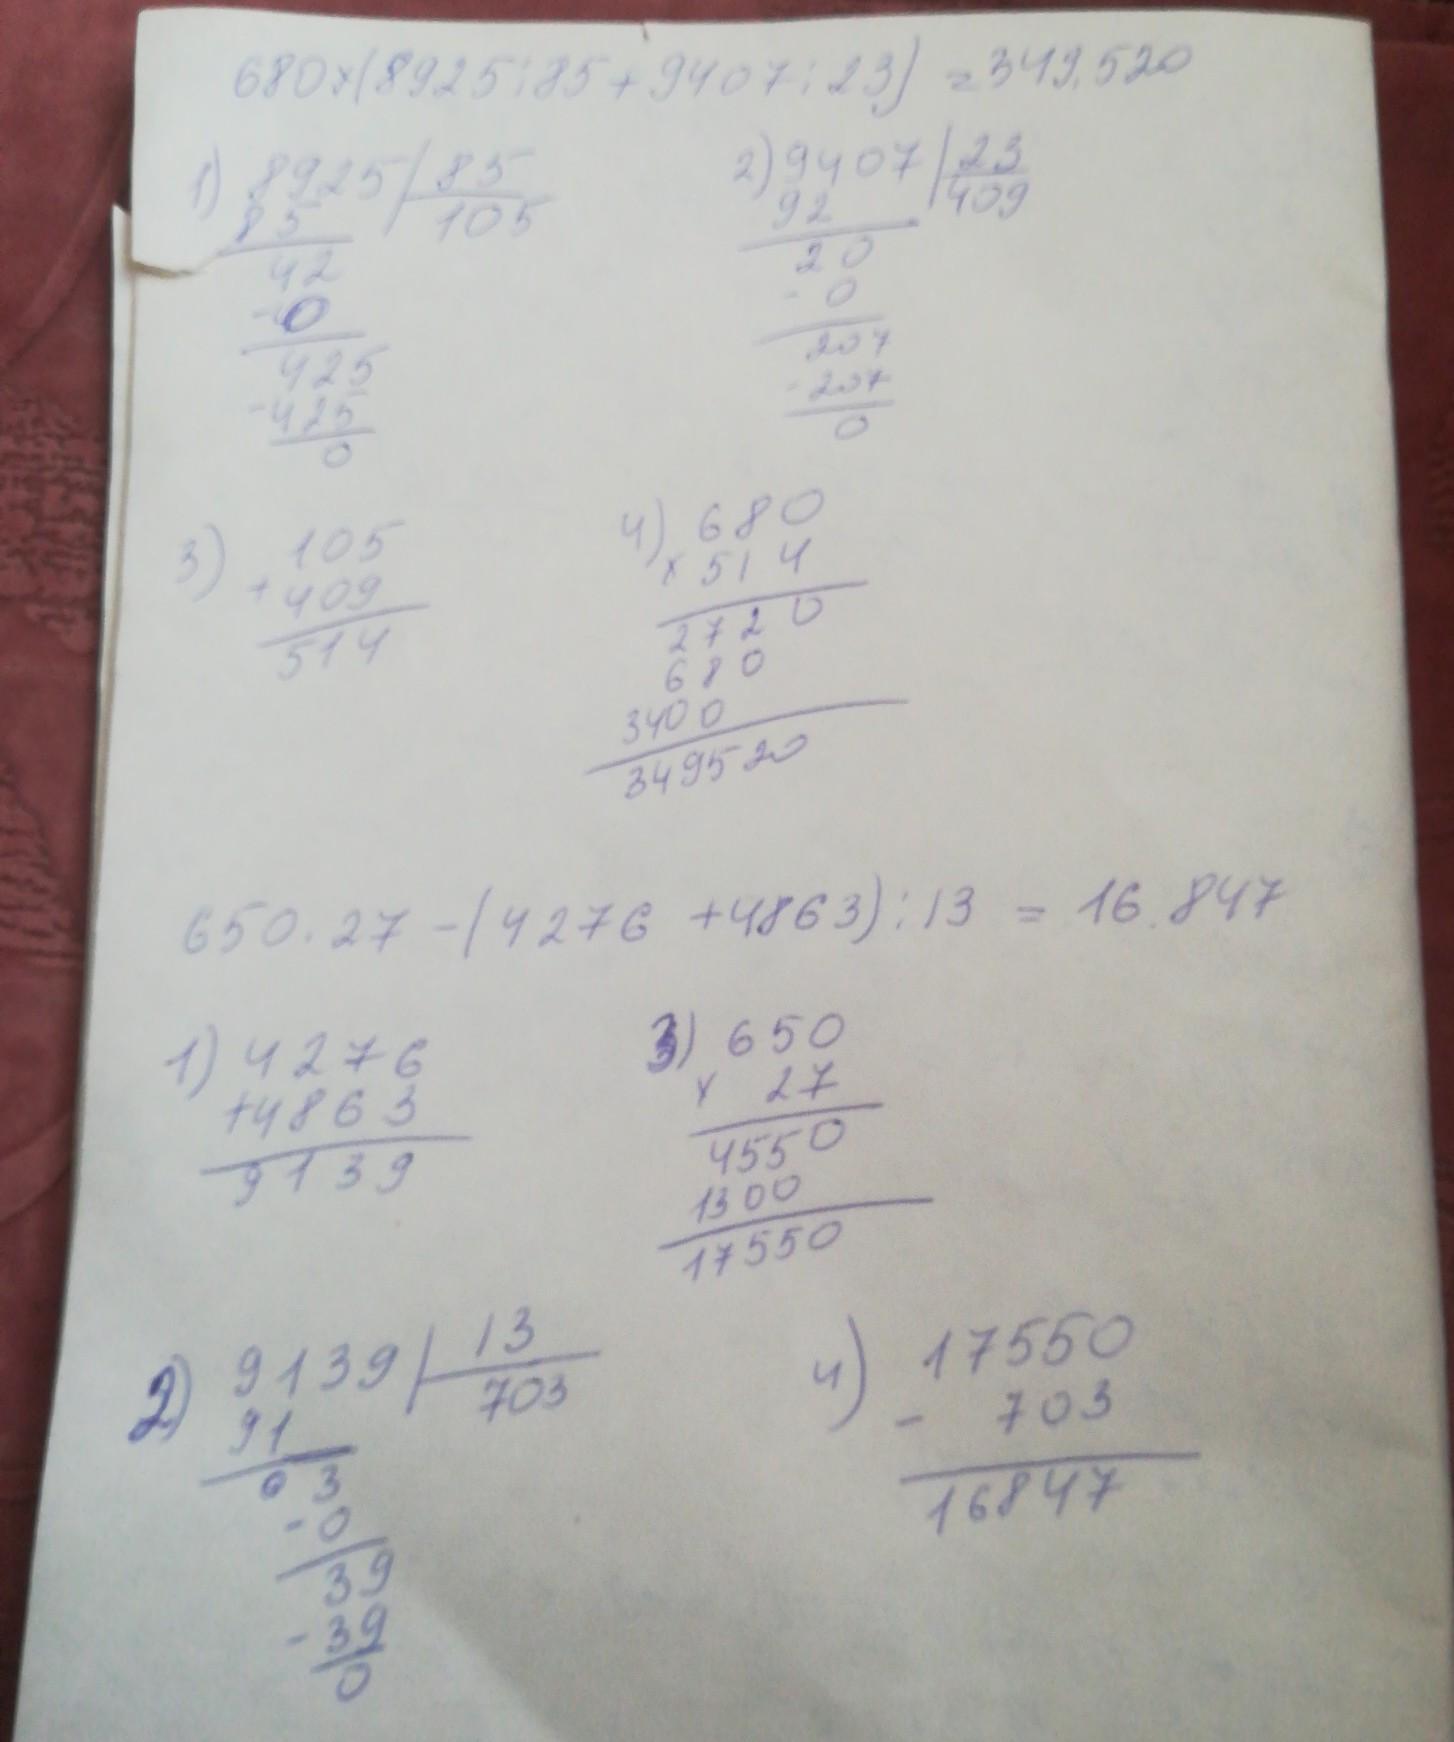 680×(8925:85+9407:23) = 349.520
1) 8925 | 85
85
105
42
-0
425
-425
0
2) 9407 | 23
92
409
20
-0
207
-207
0
3) 105
+409
514
4) 680
×514
2720
680
3400
349520
650.27-(4276+4863):13 = 16.847
1) 4276
+4863
9139
3) 650
× 27
4550
1300
17550
2) 9139 | 13
91
703
03
-0
39
-39
0
4) 17550
- 703
16847